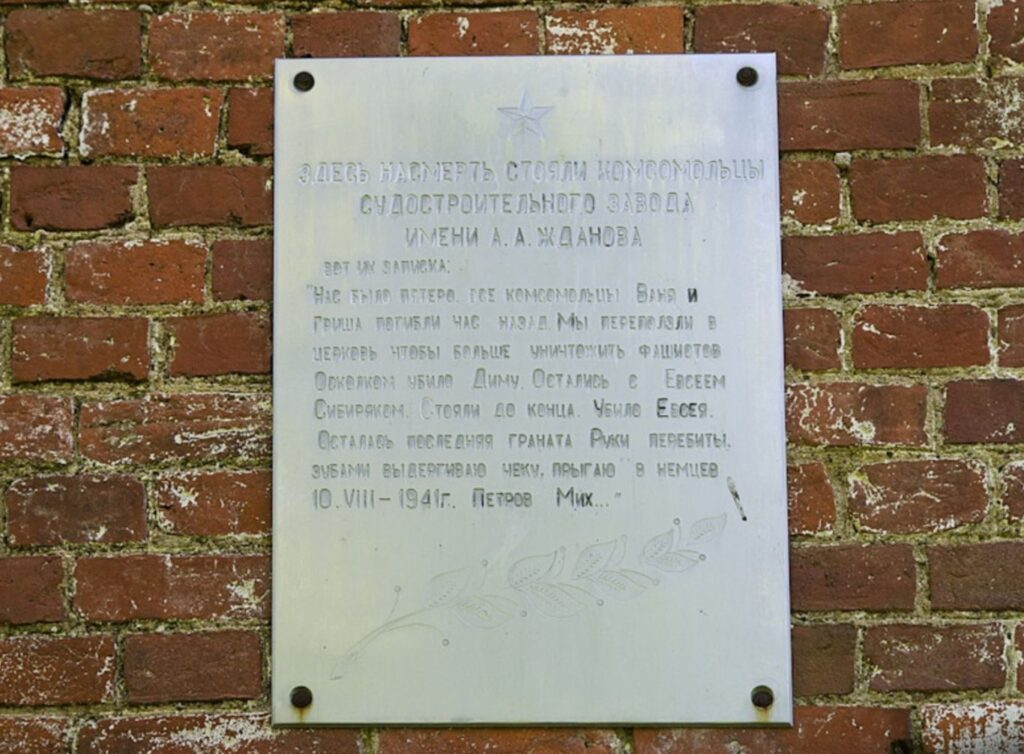 ЗДЕСЬ НАСМЕРТЬ СТОЯЛИ КОМСОМОЛЬЦЫ
СУДОСТРОИТЕЛЬНОГО ЗАВОДА
ИМЕНИ А. А. ЖДАНОВА
ВОТ ИХ ЗАПИСКА:
"НАС БЫЛО ПЯТЕРО. ВСЕ КОМСОМОЛЬЦЫ ВАНЯ И
ГРИША ПОГИБЛИ ЧАС НАЗАД. МЫ ПЕРЕПОЛЗЛИ В
ЦЕРКОВЬ ЧТОБЫ БОЛЬШЕ УНИЧТОЖИТЬ ФАШИСТОВ
ОСКОЛКОМ УБИЛО ДИМУ. ОСТАЛИСЬ С ЕВСЕЕМ
СИБИРЯКОМ. СТОЯЛИ ДО КОНЦА. УБИЛО ЕВСЕЯ.
ОСТАЛАСЬ ПОСЛЕДНЯЯ ГРАНАТА РУКИ ПЕРЕБИТЫ,
ЗУБАМИ ВЫДЕРГИВАЮ ЧЕКУ, ПРЫГАЮ В НЕМЦЕВ
10. VIII – 1941г. ПЕТРОВ МИХ..."